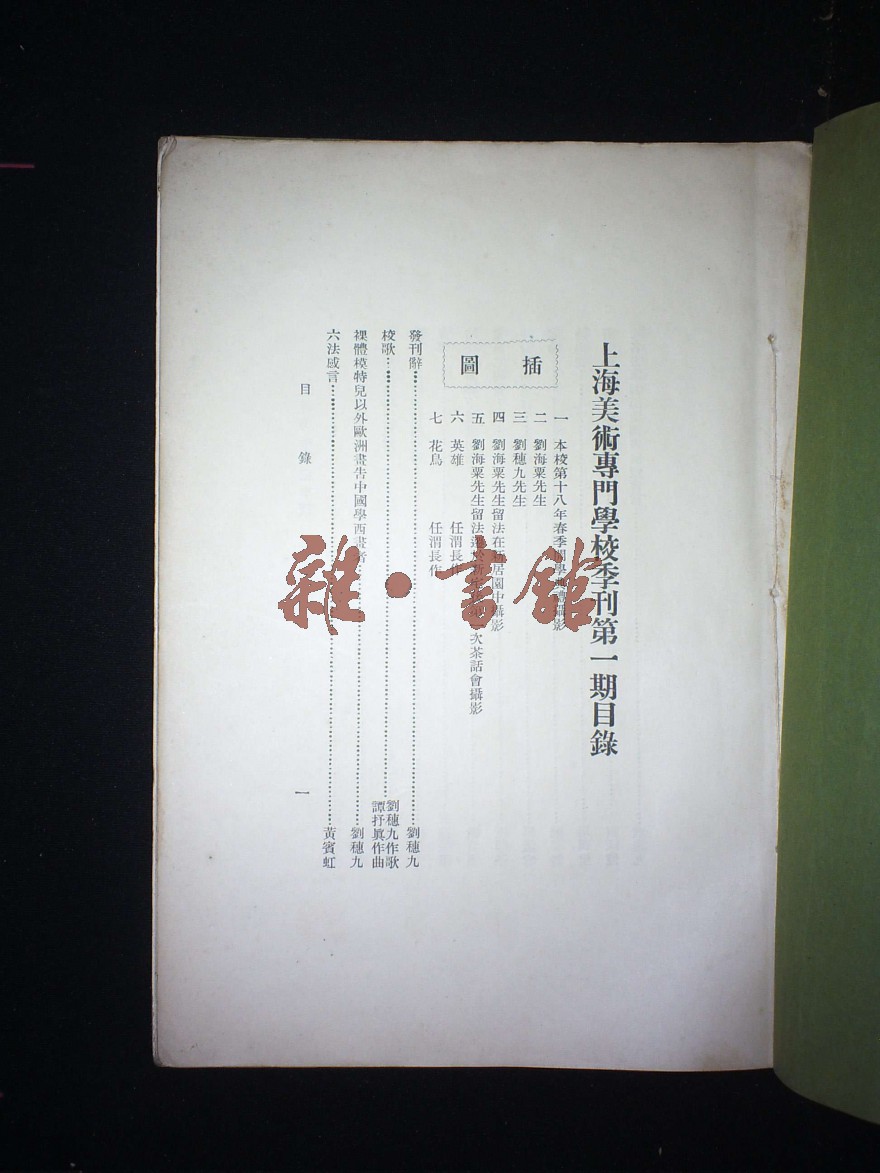 上海美術專門學校季刊第一期目錄
插圖
一 本校第十八年春季開學典禮攝影
二 劉海粟先生
三 劉穗九先生
四 劉海粟先生留法在新居園中攝影
五 劉海粟先生留法 次茶話會攝影
六 英雄 任渭長作
七 花鳥 任渭長作
發刊辭 劉穗九
校歌 劉穗九作歌
譚抒眞作曲
裸體模特兒以外歐洲畫吿中國學西畫者 劉穗九
六法感言 黃賓虹
目錄
一
雜·書館